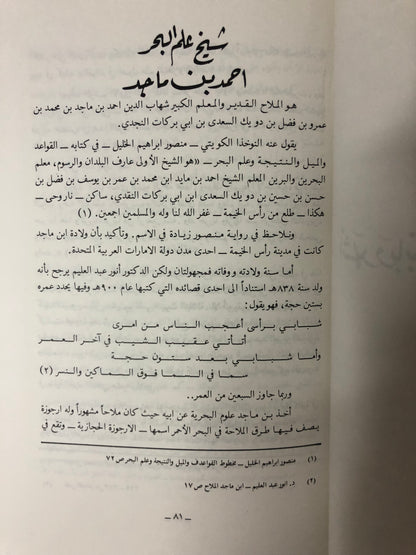 شيخ علم البحر
احمد بن ماجد
هو الملاح القدير والمعلم الكبير شهاب الدين احمد بن ماجد بن محمد بن
عمرو بن فضل بن دويك السعدى بن ابي بركات النجدي.
يقول عنه النوخذا الكويتي ــ منصور ابراهيم الخليل ــ في كتابه ــ القواعد
والميل والنتيجة وعلم البحر ــ «هو الشيخ الأولى عارف البلدان والرسوم، معلم
البحرين والبرين المعلم الشيخ احمد بن مايد ابن محمد بن عمر بن يوسف بن فضل بن
حسن بن حسين بن دويك السعدى ابن أبي بركات النقدي، ساكن ــ ناروحى ــ
هكذا ــ طلع من رأس الخيمة ــ غفر الله لنا وله والمسلمين اجمعين. (١)
ونلاحظ في رواية منصور زيادة في الاسم. وتأكيد بأن ولادة ابن ماجد
كانت في مدينة رأس الخيمة ــ احدى مدن دولة الامارات العربية المتحدة.
أما سنة ولادته ووفاته فمجهولتان ولكن الدكتور أنور عبد العليم يرجح بأنه
ولد سنة ٨٣٨هـ استناداً الى احدى قصائده التي كتبها عام ٩٠٠هـ وفيها يحدد عمره
بستين حجة، فهو يقول:
شبابي برأسى أعجب الناس من امرى
أتأتي عقيب الشيب في آخر العمر
وأما شبابي بعد ستون حجة
سما في السما فوق السماكين والنسر (٢)
وربما جاوز السبعين من العمر..
أخذ بن ماجد علوم البحرية عن أبيه حيث كان ملاحاً مشهوراً وله ارجوزة
يصف فيها طرق الملاحة في البحر الأحمر اسمها ــ الارجوزة الحجازية ــ وتقع في
(١) منصور ابراهيم الخليل ــ مخطوط القواعد والميل والنتيجة وعلم البحر ص ٧٢
(٢) د. انور عبد العليم ــ ابن ماجد الملاح ص ١٧
ــ ٨١ ــ